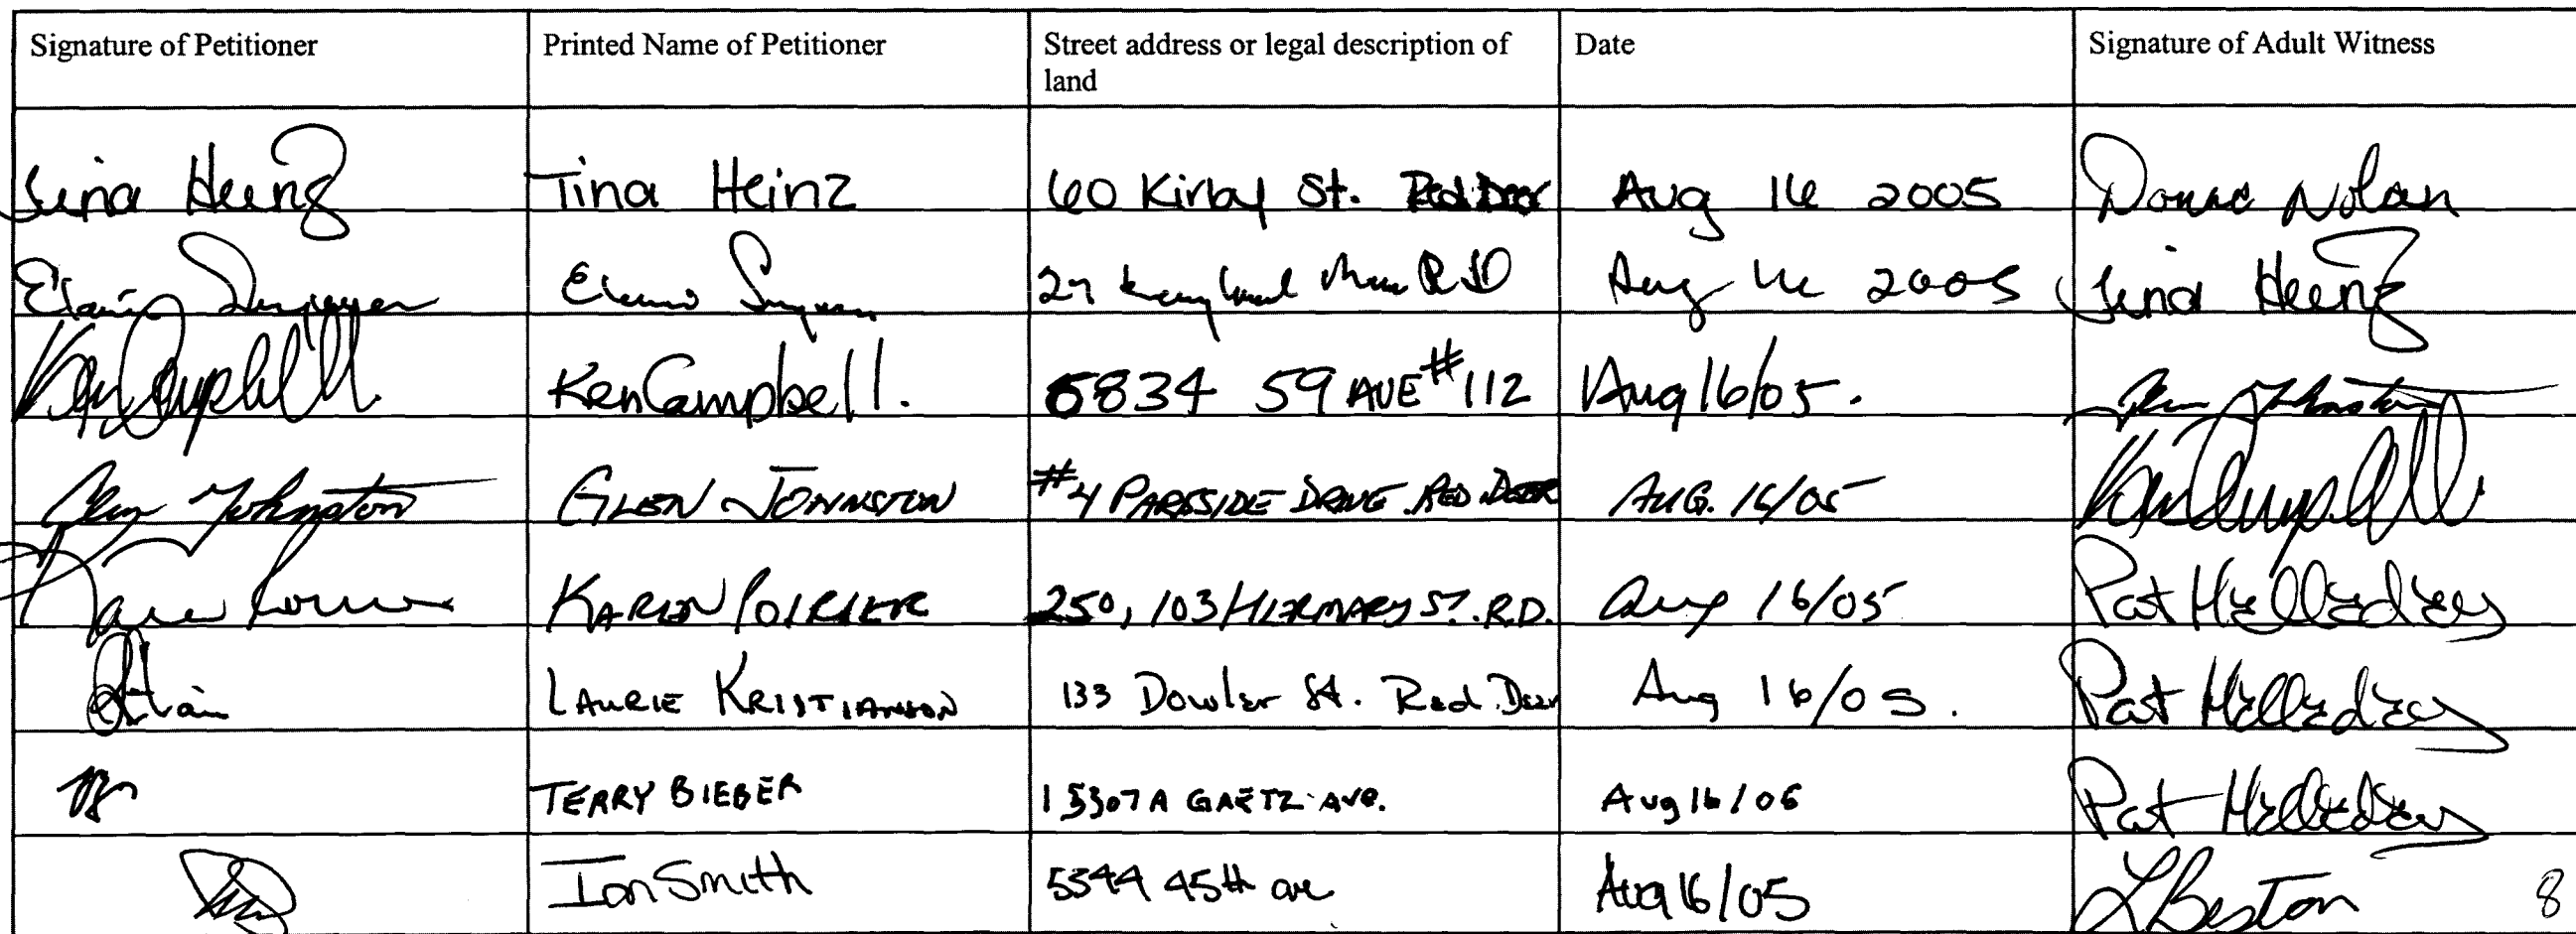 Signature of Petitioner Printed Name of Petitioner Street address or legal description of land Date Signature of Adult Witness
Tina Heinz Tina Heinz 60 Kirby St. Red Deer Aug 16 2005 Nolan
Aug 16 2005 Tina Heinz
Ken Campbell Ken Campbell. 5834 59 AVE #112 Aug 16/05. Glen Johnston
Glen Johnston GLEN JOHNSTON #4 PARKSIDE DRIVE RED DEER AUG. 16/05 Ken Campbell
KAREN POIRIER 250, 103 HERMARY ST. R.D. Aug 16/05 Pat
LAURIE KRISTIANSON 133 Dowler St. Red Deer Aug 16/05. Pat
TERRY BIEBER 5307A GAETZ AVE. Aug 16/05 Pat
Ian Smith 5344 45th ave Aug 16/05 L Beston 8